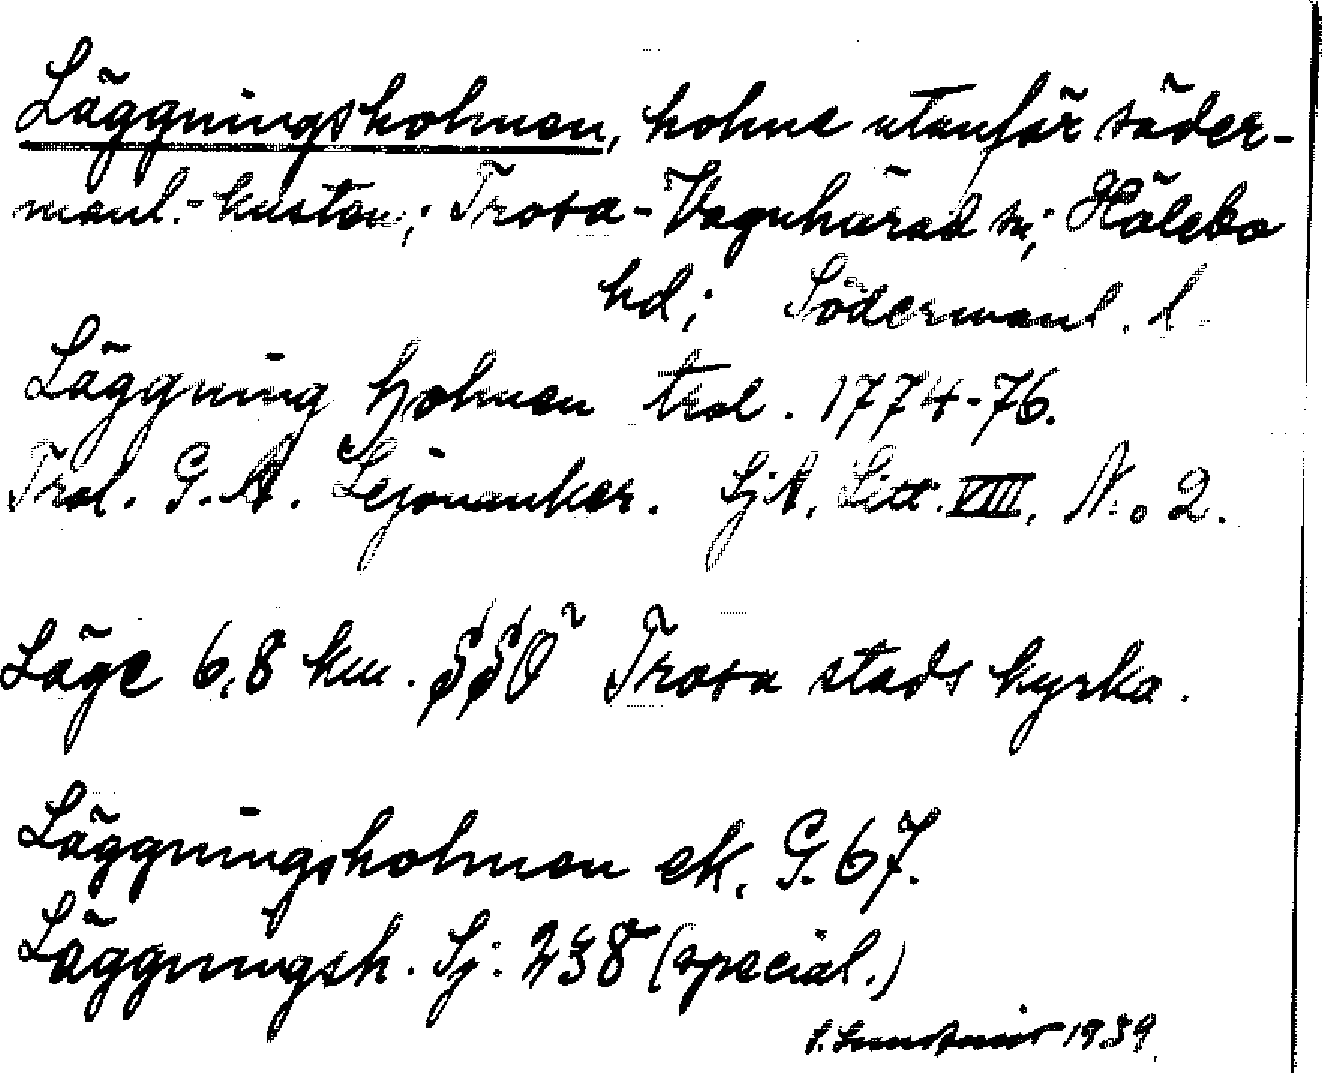 Läggningsholmen, holme utanför söder-
manl.-kusten; Trosa-Vagnhärad sn; Hölebo
hd; Södermanl. l
Läggning holmen trol. 1774-76.
Trol. G. A. Lejonanker. SjA. Litt. VIII. N:o 2.
Läge 6,8 km. SSO Trosa stads kyrka.
Läggningsholmen ek. G. 67.
Läggningsh. Sj: 238 (special.)
1939